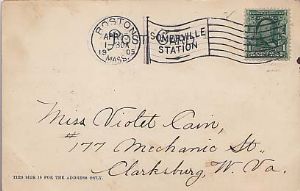 BOSTON
APR
30A
1905
MASS.
POST CARD
SOMERVILLE
STATION
1
Miss Violet Cain,
#177 Mechanic St.,
Clarksburg, W. Va.
THIS SIDE IS FOR THE ADDRESS ONLY.